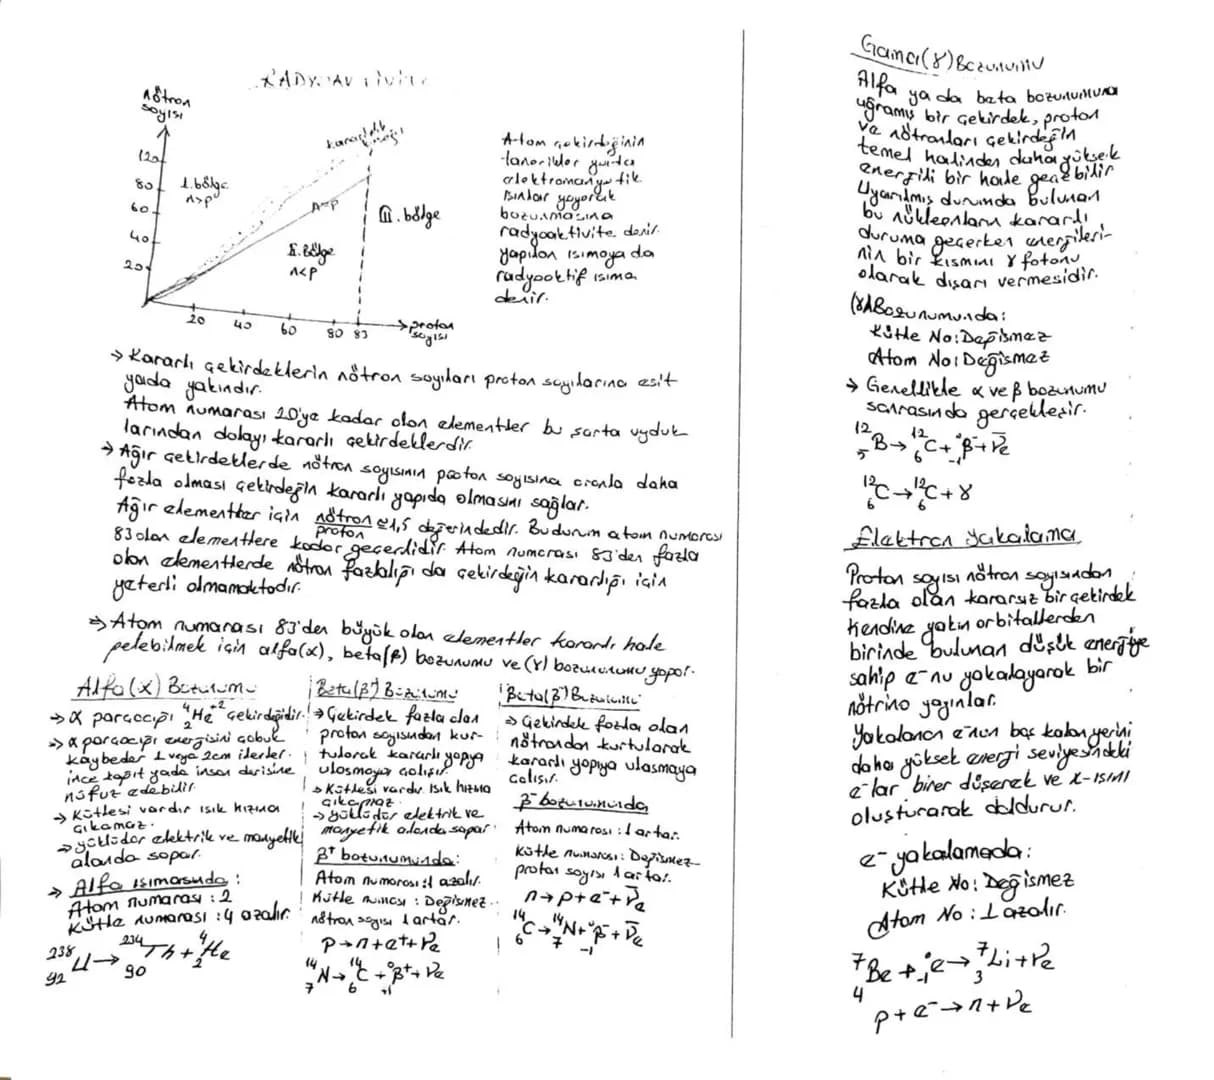 RADYOAKTİVİTE
nötron
sayısı
120
80
60
40
20
1. bölge
n>p
kararlılık
kuşağı
n=p
II. bölge
n<p
III. bölge
20 40 60 80 83
proton
sayısı
Atom çekirdeğinin
tanecikler ya da
elektromanyetik
ışınlar yayarak
bozunmasına
radyoaktivite denir.
yapılan ışımaya da
radyoaktif ışıma
denir.
→ Kararlı çekirdeklerin nötron sayıları proton sayılarına eşit
yada yakındır.
Atom numarası 20'ye kadar olan elementler bu şarta uyduk
larından dolayı kararlı çekirdeklerdir.
→ Ağır çekirdeklerde nötron sayısının proton sayısına oranla daha
fazla olması çekirdeğin kararlı yapıda olmasını sağlar.
Ağır elementler için nötron/proton ≅1,5 değerindedir. Bu durum atom numarası
83 olan elementlere kadar geçerlidir. Atom numarası 83'den fazla
olan elementlerde nötron fazlalığı da çekirdeğin kararlığı için
yeterli olmamaktadır.
→ Atom numarası 83'den büyük olan elementler kararlı hale
gelebilmek için alfa(α), beta(β) bozunumu ve (γ) bozunumu yapar.
Alfa(α) Bozunumu
→ α parçacığı ⁴₂He⁺² çekirdeğidir.
→ α parçacığı enerjisini çabuk
kaybeder 1 veya 2cm ilerler.
ince kağıt yada insan derisine
nüfuz edebilir.
→ Kütlesi vardır ışık hızına
çıkamaz.
→ yüklüdür elektrik ve manyetik
alanda sapar.
→ Alfa ışımasında:
Atom numarası : 2
Kütle numarası : 4 azalır.
²³⁸₉₂U → ²³⁴₉₀Th + ⁴₂He
Beta(β⁺) Bozunumu
→ Çekirdek fazla olan
proton sayısından kur-
tularak kararlı yapıya
ulaşmaya çalışır.
→ Kütlesi vardır. Işık hızına
çıkamaz.
→ yüklüdür elektrik ve
manyetik alanda sapar.
β⁺ bozunumunda:
Atom numarası :1 azalır.
Kütle numarası : Değişmez.
nötron sayısı 1 artar.
p→n+e⁺+νe
¹⁴₇N→¹⁴₆C+⁰₊₁β⁺+νe
Beta(β⁻) Bozunumu
→ Çekirdek fazla olan
nötrondan kurtularak
kararlı yapıya ulaşmaya
çalışır.
β⁻ bozunumunda
Atom numarası : 1 artar.
Kütle numarası : Değişmez
proton sayısı 1 artar.
n→p+e⁻+ν̄e
¹⁴₆C→¹⁴₇N+⁰₋₁β⁻+ν̄e
Gama(γ) Bozunumu
Alfa ya da beta bozunumuna
uğramış bir çekirdek, proton
ve nötronları çekirdeğin
temel halinden daha yüksek
enerjili bir hale geçebilir
Uyarılmış durumda bulunan
bu nükleonların kararlı
duruma geçerken enerjileri-
nin bir kısmını γ fotonu
olarak dışarı vermesidir.
(γ) Bozunumunda:
Kütle No: Değişmez
Atom No: Değişmez
→ Genellikle α ve β bozunumu
sonrasında gerçekleşir.
¹²₅B→¹²₆C+⁰₋₁β⁻+ν̄e
¹²₆C→¹²₆C+γ
Elektron yakalama
Proton sayısı nötron sayısından
fazla olan kararsız bir çekirdek
kendine yakın orbitallerden
birinde bulunan düşük enerjiye
sahip e⁻nu yakalayarak bir
nötrino yayınlar.
Yakalanan e⁻nun boş kalan yerini
daha yüksek enerji seviyesindeki
e⁻lar birer düşerek ve x-ışını
oluşturarak doldurur.
e⁻ yakalamada:
Kütle No: Değişmez
Atom No : 1 azalır.
⁷₄Be+⁰₋₁e→⁷₃Li+νe
p+e⁻→n+νe